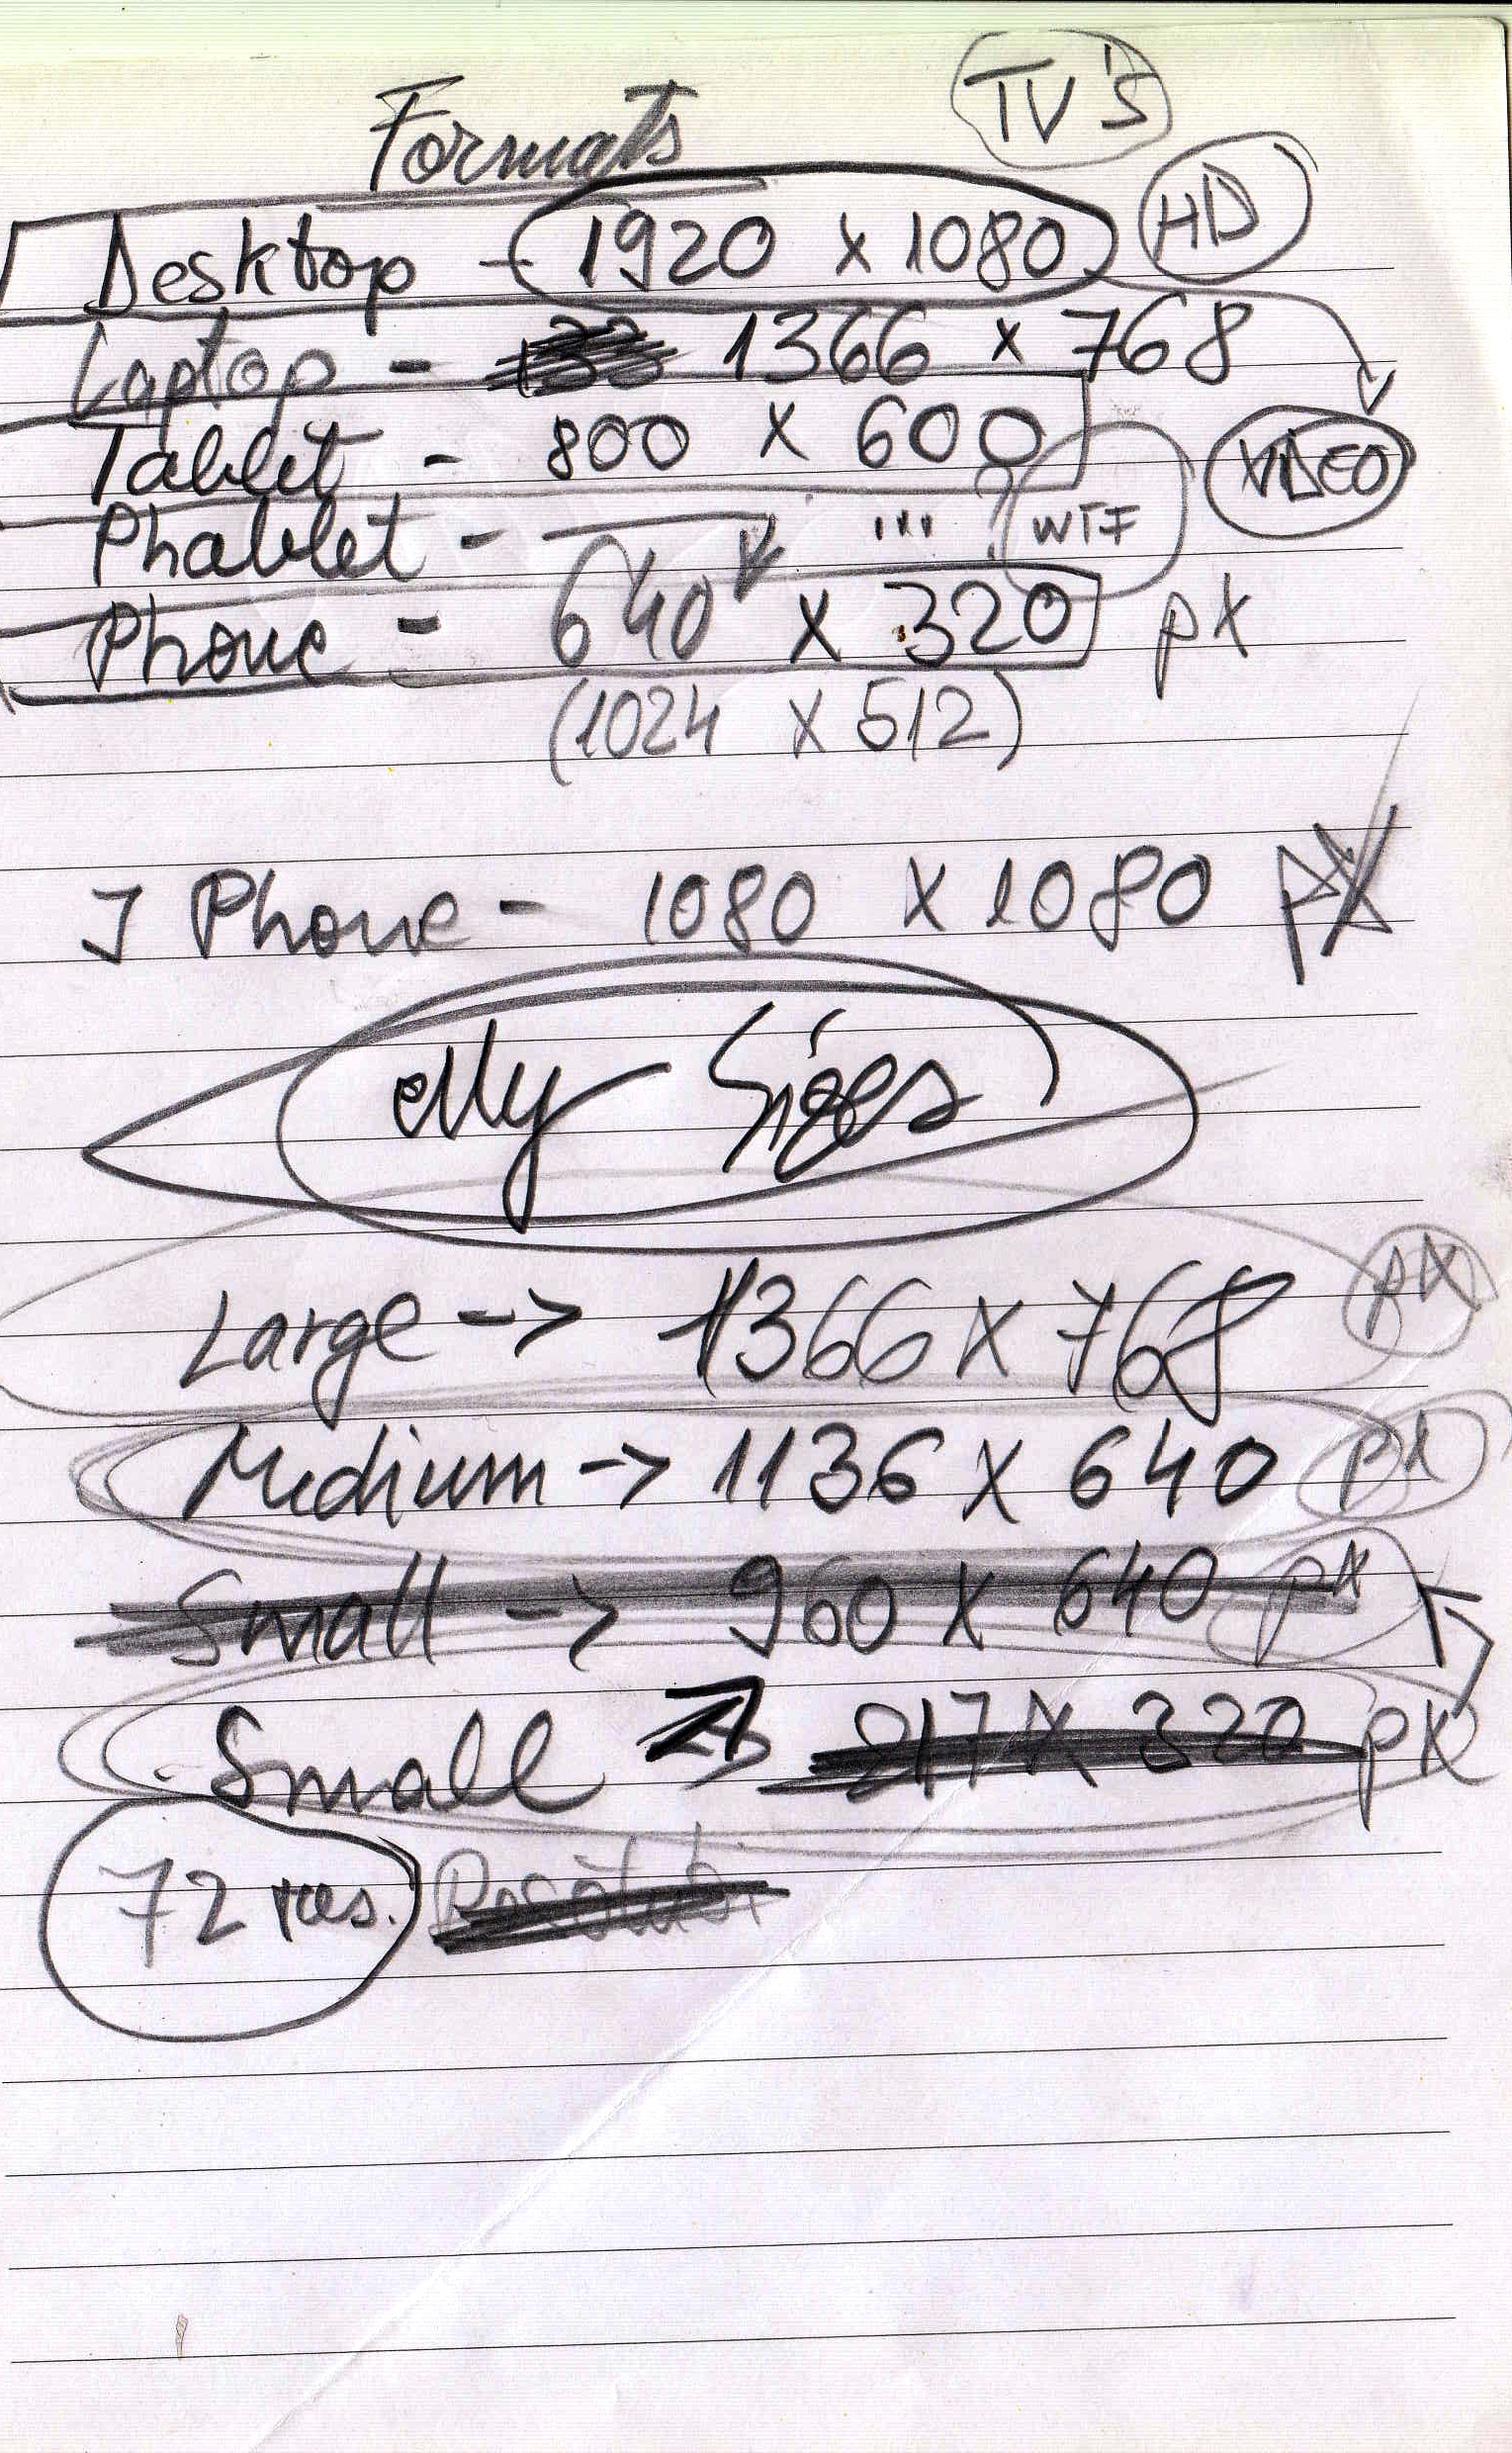 TV'S
Formats
Desktop - 1920 x 1080 HD
Laptop - 1366 x 768
Tablet - 800 x 600 VIDEO
Phablet - ... ? WTF
Phone - 640 x 320 px
(1024 x 512)
I Phone - 1080 x 1080 px
My Sizes
Large -> 1366 x 768 px
Medium -> 1136 x 640 px
Small -> 960 x 640 px
Small -> 217 x 320 px
72 res.